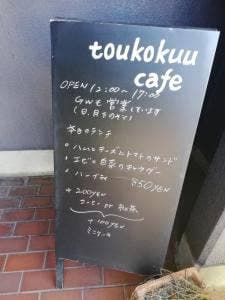 toukokuu
cafe
OPEN 12:00〜17:00
GWも営業しています
本日のランチ
・ハムとチーズとトマトのサンド
・エビと白菜のチャウダー
・ハーブ 850YEN
+200YEN
コーヒー or 和紅茶
+100YEN
ミニケーキ